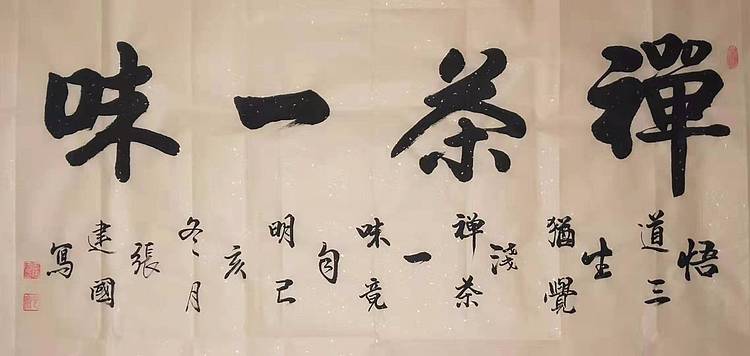 禪茶一味
悟
道三
生
猶覺
淺
禅茶
一
味竟
自
明己
亥
冬月
張
建國
寫